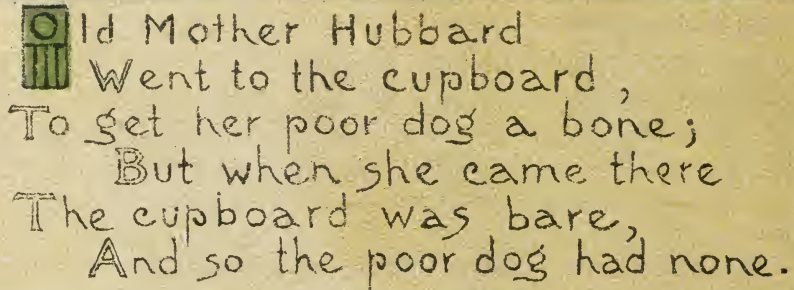 Old Mother Hubbard
Went to the cupboard,
To get her poor dog a bone;
But when she came there
The cupboard was bare,
And so the poor dog had none.